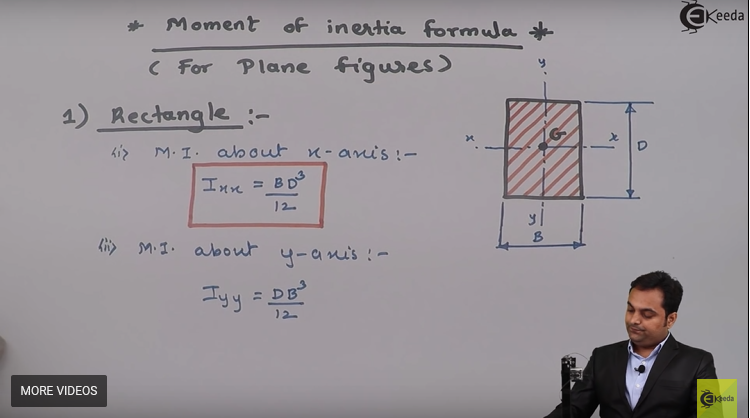 * Moment of inertia formula *
(For Plane figures)
1) Rectangle :-
(i) M.I. about x-axis :-
Ixx = BD³/12
(ii) M.I. about y-axis :-
Iyy = DB³/12
y
x G x
D
y
B
EKeeda
MORE VIDEOS
EKeeda